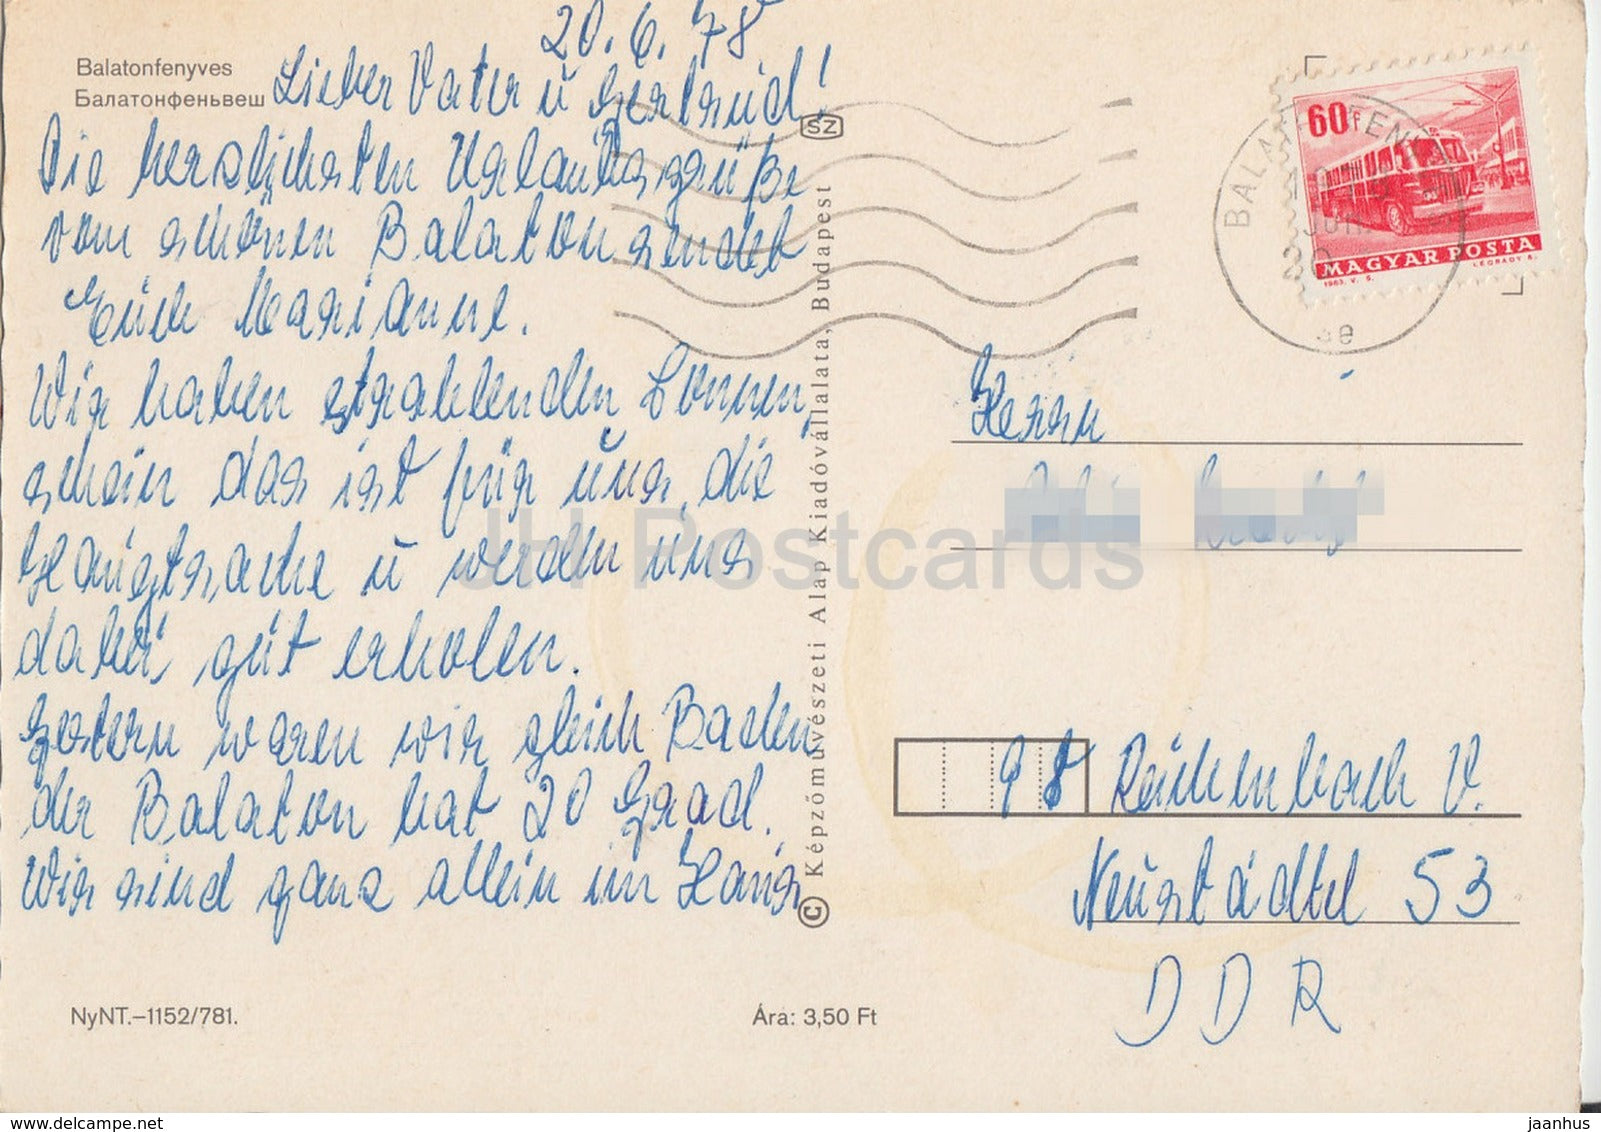 20.6.78
Balatonfenyves
Балатонфеньвеш
Lieber Vater ü Gertrud!
Die herzlichsten Urlaubsgrüße
vom schönen Balaton sendet
Euch Marianne.
Wir haben strahlenden Sonnen,
schein das ist für uns, die
Hauptsache ü werden uns
dabei gut erholen.
Gestern waren wir gleich Baden
der Balaton hat 20 Grad.
Wir sind ganz allein im Haus
NyNT.–1152/781.
Ára: 3,50 Ft
SZ
© Képzőművészeti Alap Kiadóvállalata, Budapest
60f
MAGYAR POSTA
1963. V. S.
LÉGRÁDY S.
Herrn
98 Reichenbach V.
Neustädtel 53
DDR
JH Postcards
delcampe.net
jaanhus